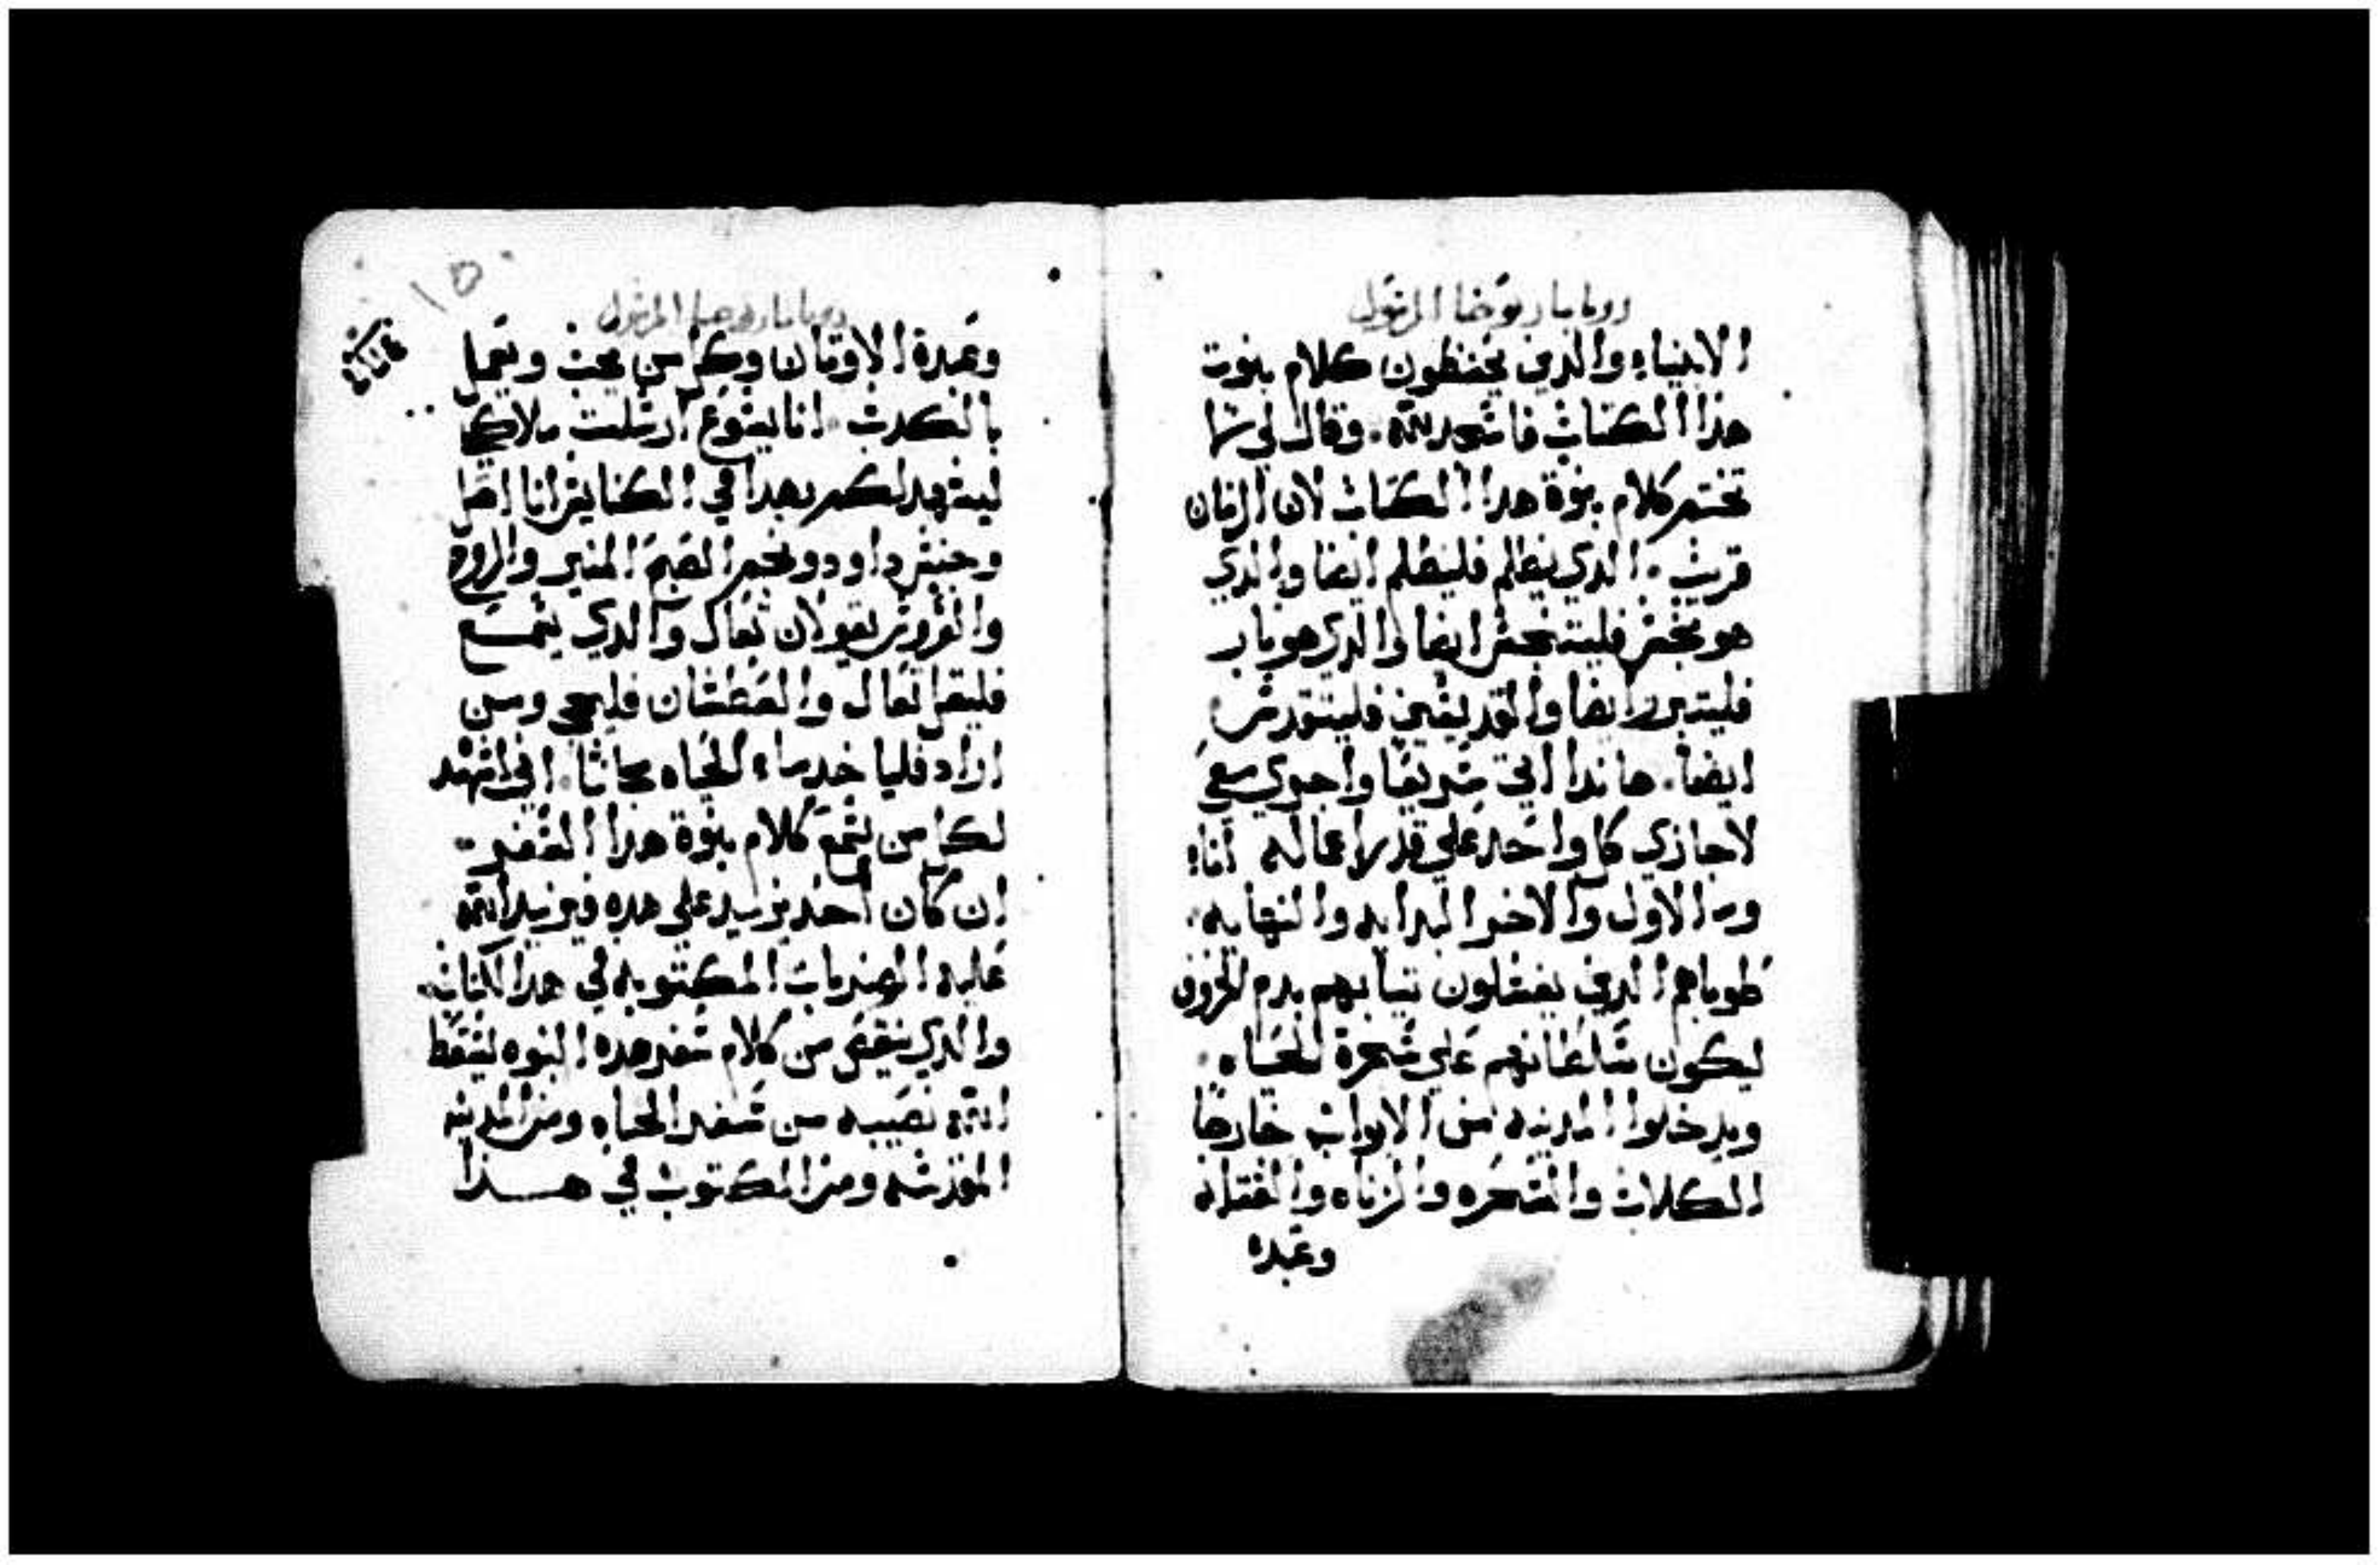 رويا ماريوحنا الرسول
الانبياء والدين يحفظون كلام بنوت
هذا الكتاب فاسجد لله. وقال لي لا
تختم كلام بنوة هدا الكتاب لان الزمان
قريب. الدي يظلم فليظلم ايضا والدي
هو نجس فليتنجس ايضا والدي هو بار
فليتبرر ايضا والقديسين فليتقدس
ايضا. هاندا اتي سريعا واجري معي
لاجازي كل واحد علي قدر اعماله انا
هو الاول والاخر البدايه والنهايه.
طوباهم الدين يغسلون تيابهم بدم الخروف
ليكون سلطانهم علي شجرة الحياه.
ويدخلوا المدينه من الابواب خارجا
الكلاب والسحره والزناه والقتله
وعبده
رويا ماريوحنا الرسول
وعبدة الاوتان وكل من يحب ويعمل
بالكدب. انا يسوع ارسلت ملاكي
ليشهد لكم بهدا في الكنايس انا اصل
وجنس داوود ونجم الصبح المنير والروح
والعروس يقولان تعال والدي يسمع
فليقل تعال والعطشان فليجي ومن
اراد فلياخد ماء الحياه مجانا. اني اشهد
لكل من يسمع كلام بنوة هدا السفر
ان كان احد يزيد علي هده فيزيد الله
عليه الضربات المكتوبه في هدا الكتاب.
والدي ينقص من كلام سفر هده النبوه ليسقط
الله نصيبه من سفر الحياه ومن المدينه
المقدسه ومن المكتوب في هــذا